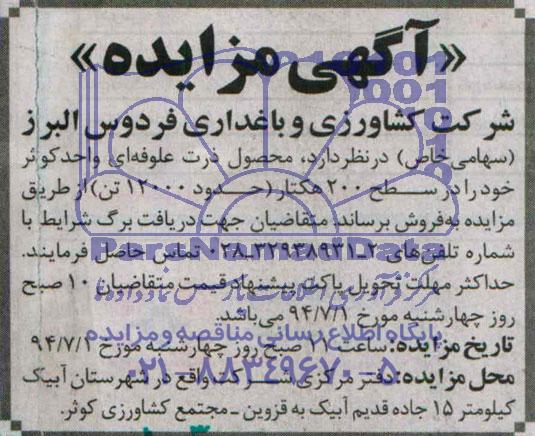 «آگهی مزایده»
شرکت کشاورزی و باغداری فردوس البرز
(سهامی خاص) درنظردارد، محصول ذرت علوفه‌ای واحدکوثر
خود را در سطح ۲۰۰ هکتار (حدود ۱۲۰۰۰ تن) از طریق
مزایده به‌فروش برساند. متقاضیان جهت دریافت برگ شرایط با
شماره تلفن‌های ۲-۳۲۹۳۸۹۳۱-۲۸ تماس حاصل فرمایند.
حداکثر مهلت تحویل پاکت پیشنهاد قیمت متقاضیان ۱۰ صبح
روز چهارشنبه مورخ ۹۴/۷/۱ می‌باشد.
تاریخ مزایده: ساعت ۱۱ صبح روز چهارشنبه مورخ ۹۴/۷/۱
محل مزایده: دفتر مرکزی شرکت واقع در شهرستان آبیک
کیلومتر ۱۵ جاده قدیم آبیک به قزوین - مجتمع کشاورزی کوثر.
ParsNamadData
پایگاه اطلاع رسانی مناقصه و مزایده
۰۲۱-۸۸۳۴۹۶۷۰-۵